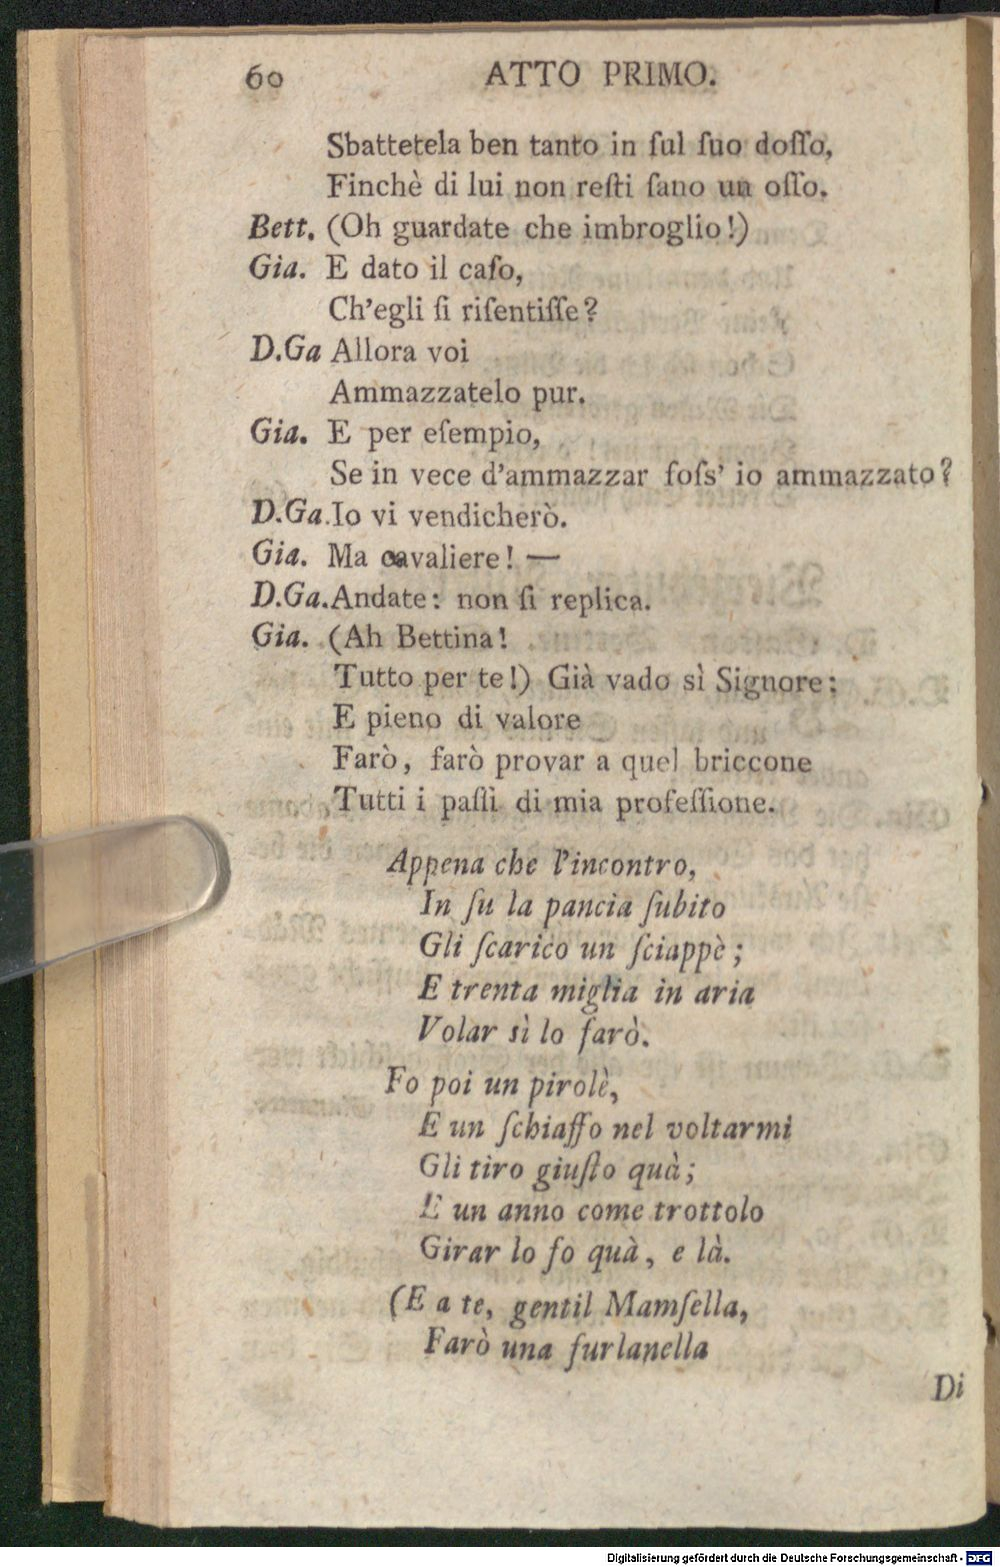 60 ATTO PRIMO.
Sbattetela ben tanto in ſul ſuo doſſo,
Finchè di lui non reſti ſano un oſſo.
Bett. (Oh guardate che imbroglio!)
Gia. E dato il caſo,
Ch'egli ſi riſentiſſe?
D.Ga Allora voi
Ammazzatelo pur.
Gia. E per eſempio,
Se in vece d'ammazzar foſs' io ammazzato?
D.Ga.Io vi vendicherò.
Gia. Ma cavaliere! —
D.Ga.Andate: non ſi replica.
Gia. (Ah Bettina!
Tutto per te!) Già vado sì Signore:
E pieno di valore
Farò, farò provar a quel briccone
Tutti i paſſi di mia profeſſione.
Appena che l'incontro,
In ſu la pancia ſubito
Gli ſcarico un ſciappè;
E trenta miglia in aria
Volar sì lo farò.
Fo poi un pirolè,
E un ſchiaffo nel voltarmi
Gli tiro giuſto quà;
E un anno come trottolo
Girar lo fo quà, e là.
(E a te, gentil Mamſella,
Farò una furlanella
Di
Digitalisierung gefördert durch die Deutsche Forschungsgemeinschaft - DFG